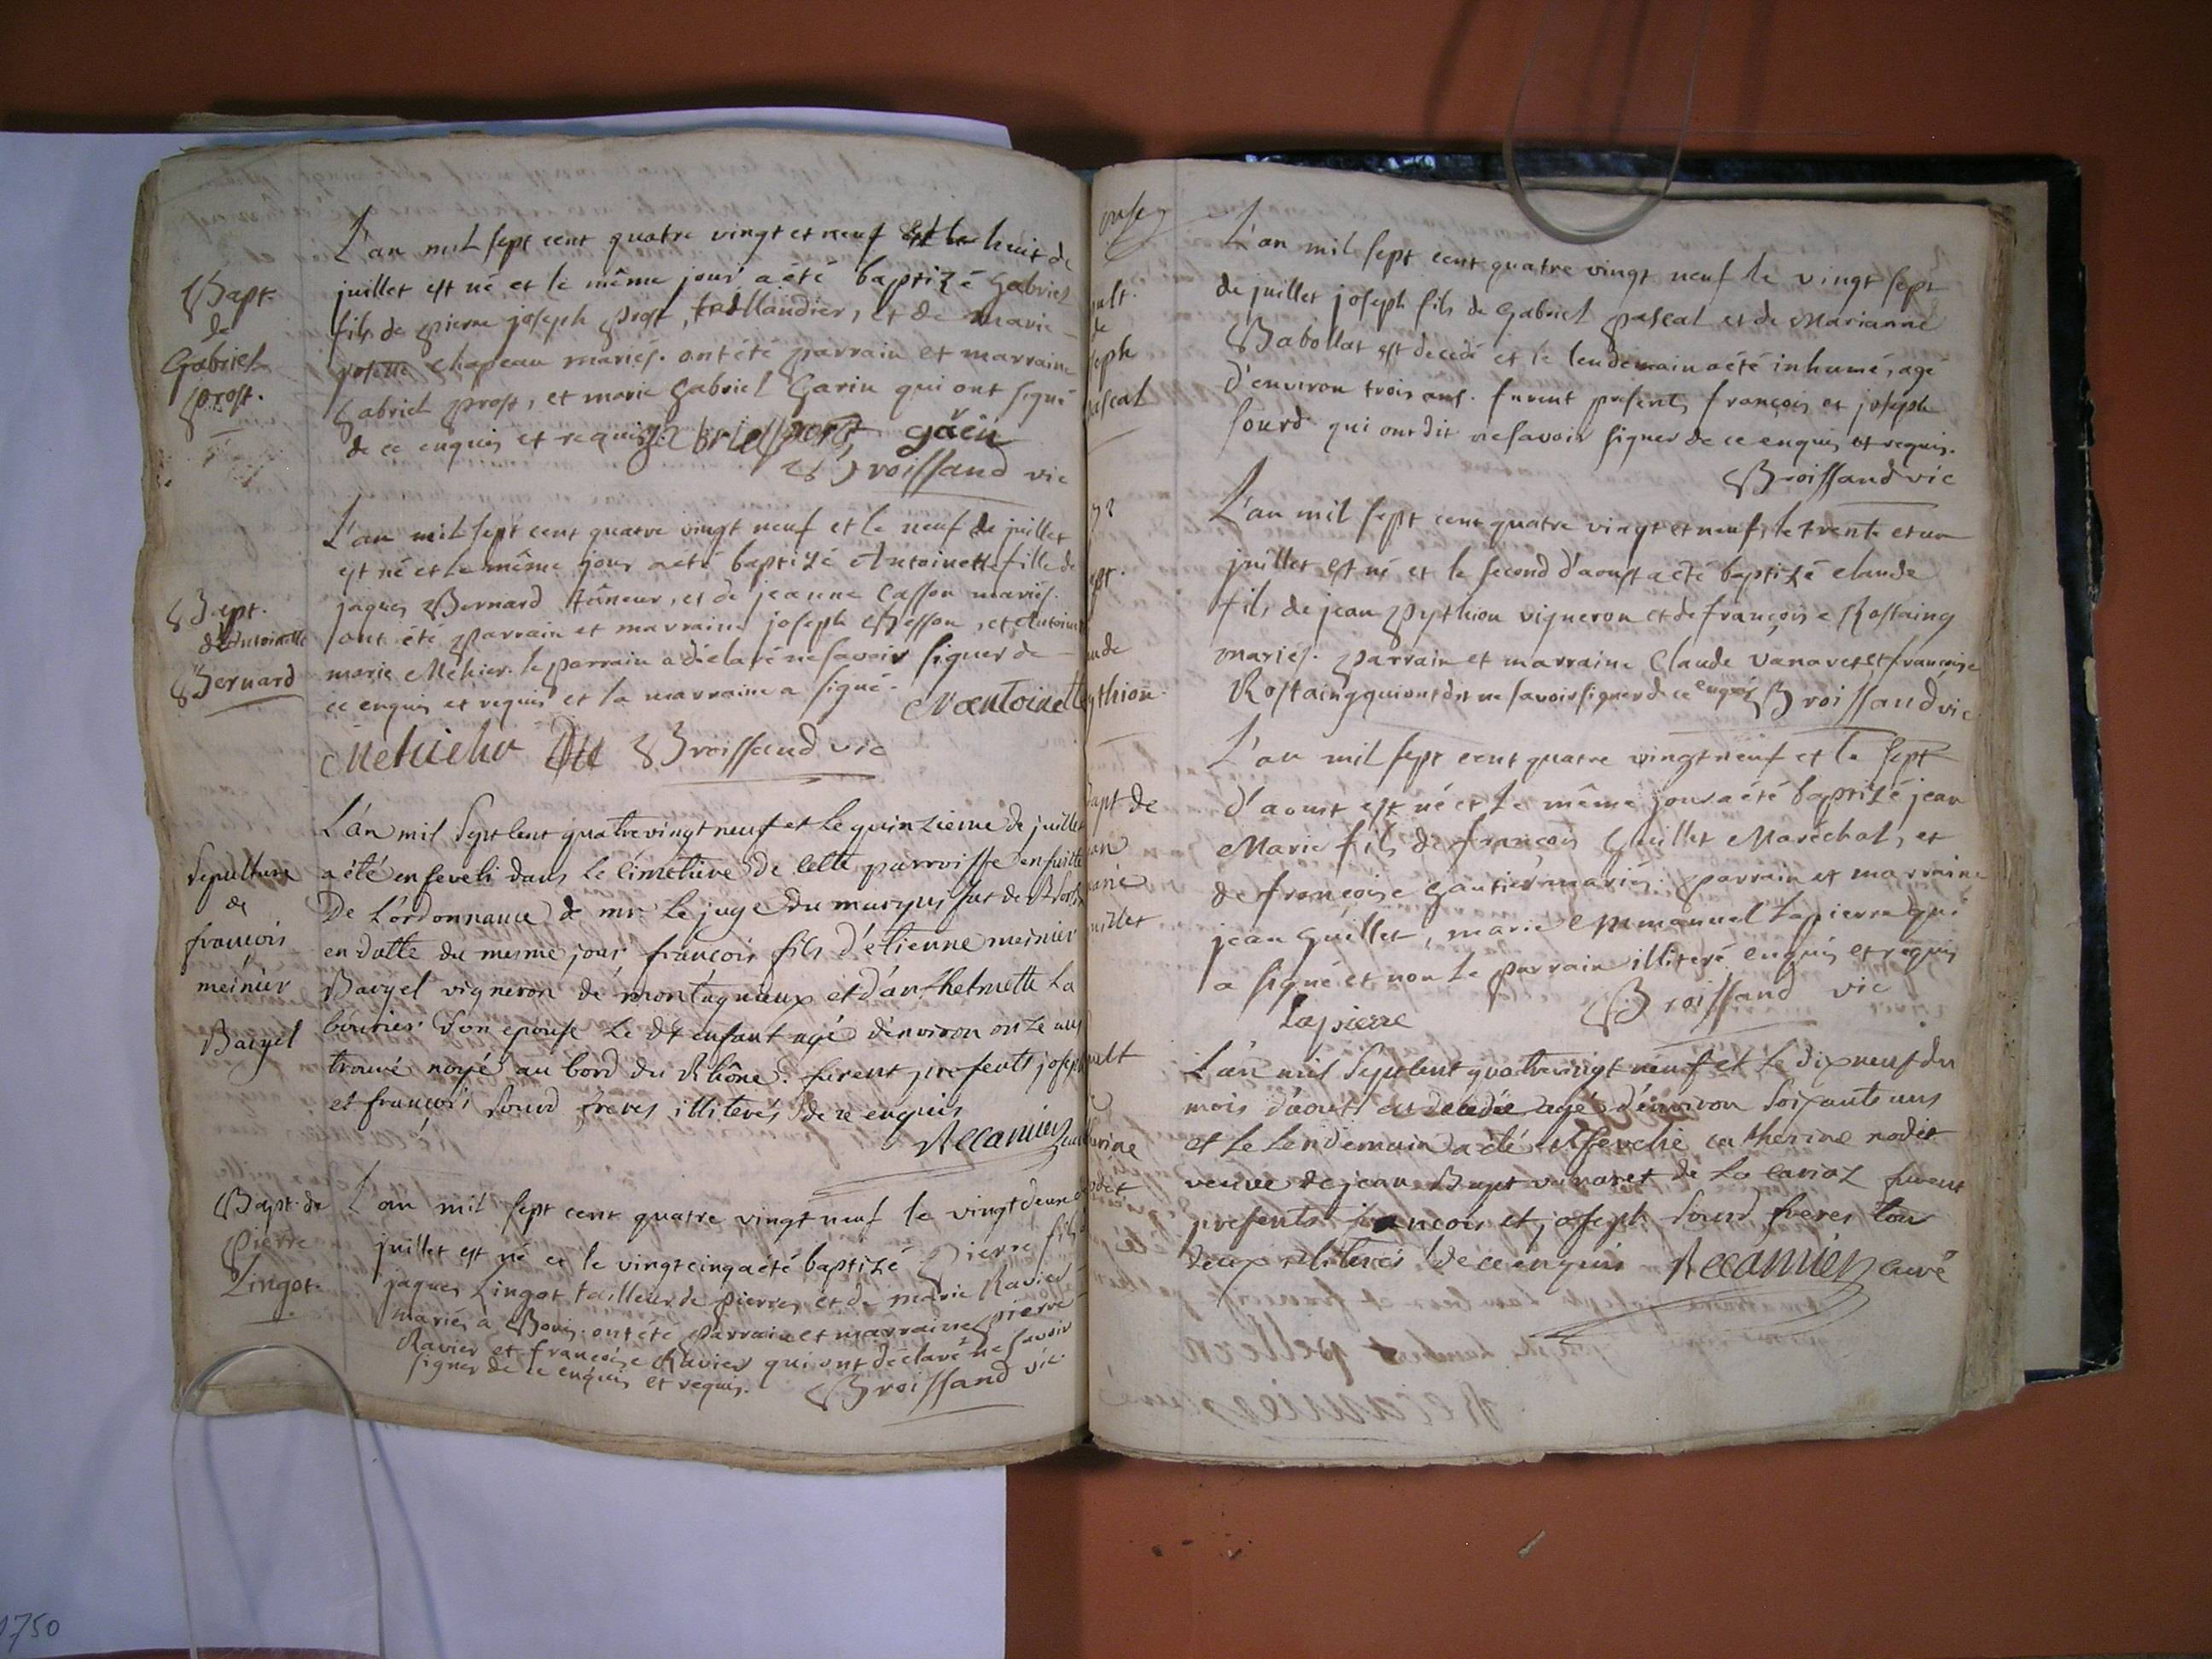 L'an mil sept cent quatre vingt et neuf et le huit de
juillet est né et le même jour a été baptizé Gabriel
fils de pierre joseph prost, taillandier, et de marie
josette chapeau mariés. ont été parrain et marraine
Gabriel prost, et marie Gabriel Garin qui ont signé
de ce enquis et requis. gabriel prost
Broissand vic
Bapt.
de
Gabriel
prost.
L'an mil sept cent quatre vingt neuf et le neuf de juillet
est né et le même jour a été baptizé Antoinette fille de
jaques Bernard tâneur, et de jeanne Casson mariés.
ont été parrain et marraine joseph Besson, et Antoinette
marie Méhier. le parrain a déclaré ne savoir signer de
ce enquis et requis et la marraine a signé. M antoinette
Broissand vic
Bapt.
d'Antoinette
Bernard
L'an mil sept cent quatre vingt neuf et le quinzieme de juillet
a été enseveli dans le cimetiere de cette parroisse ensuitte
De L'ordonnance de mr. Le juge du marquisat de
en datte du mesme jour françois fils d'etienne meinier
Baiyel vigneron de montagnieux et d'anthelmette La
bourier son epouse Le dt enfant agé d'environ onze ans
trouvé noyé au bord du Rhône. furent presents joseph
et françois sourd freres illiterés de ce enquis
Recamier curé
Sepulture
de
françois
meinier
Baiyel
L'an mil sept cent quatre vingt neuf le vingt deux de
juillet est né et le vingt cinq a été baptizé Pierre fils de
jaques Lingot tailleur de pierres et de marie Ravier
mariés à Bouis. ont été parrain et marraine pierre
Ravier et françoise Ravier qui ont déclaré ne savoir
signer de ce enquis et requis. Broissand vic
Bapt. de
Pierre
Lingot.
L'an mil sept cent quatre vingt neuf le vingt sept
de juillet joseph fils de Gabriel pascal et de Marianne
Babollat est decedé et le lendemain a été inhumé, agé
d'environ trois ans. furent presents françois et joseph
sourd qui ont dit ne savoir signer de ce enquis et requis.
Broissand vic
seph
ascal
L'an mil sept cent quatre vingt et neuf, le trente et un
juillet est né et le second d'aoust a été baptizé claude
fils de jean pythion vigneron et de françoise Rostaing
mariés. parrain et marraine Claude vanaret et françoise
Rostaing qui ont dit ne savoir signer de ce enquis Broissand vic
ude
ythion.
L'an mil sept cent quatre vingt neuf et le sept
d'aoust est né et le même jour a été baptizé jean
Marie fils de françois Guillet Maréchal, et
de françoise gautier mariés. parrain et marraine
jean Guillet, marie emmanuel Lapierre qui
a signé et non le parrain illiteré enquis et requis
Lapierre Broissand vic
apt de
an
arie
uillet
L'an mil sept cent quatre vingt neuf et le dix neuf du
mois d'aoust est decedée agé d'environ soixante ans
et le lendemain a été ensevelie catherine nodet
veuve de jean Buyet vanaret de La cariaz furent
presents françois et joseph sourd freres tous
deux illiterés de ce enquis Recamier curé
ult
erine
odet
1750